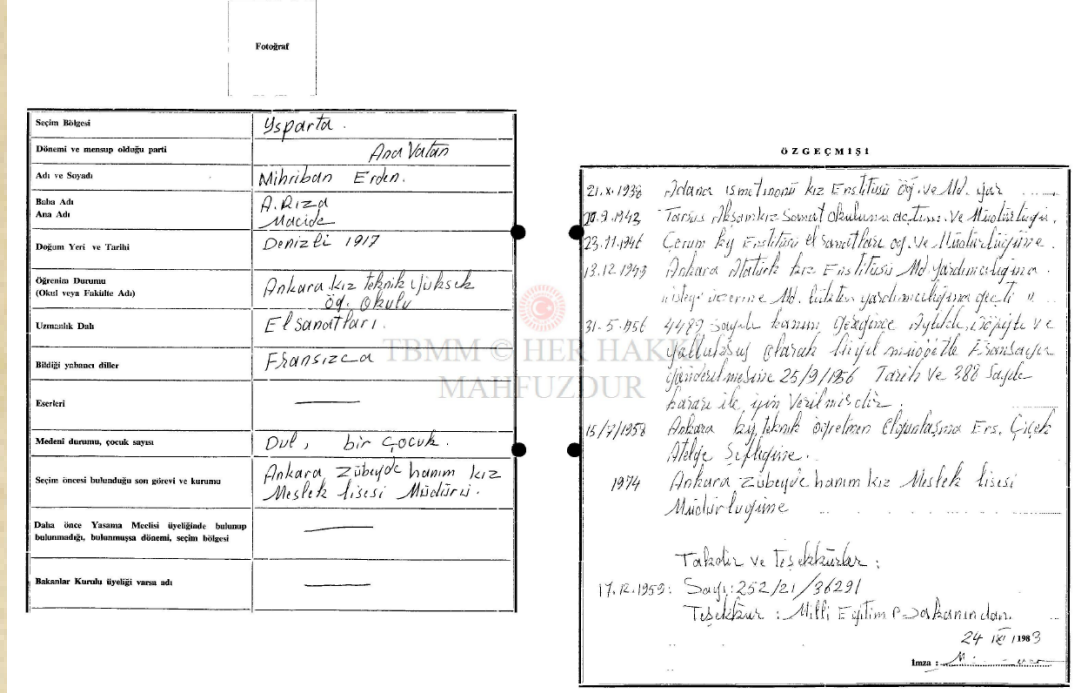 Fotoğraf
Seçim Bölgesi Ysparta.
Dönemi ve mensup olduğu parti Ana Vatan
Adı ve Soyadı Mihriban Erden.
Baba Adı A. Rıza
Ana Adı Macide
Doğum Yeri ve Tarihi Denizli 1917
Öğrenim Durumu Ankara kız teknik yüksek
(Okul veya Fakülte Adı) öğ. okulu
Uzmanlık Dalı El sanatları.
Bildiği yabancı diller Fransızca
Eserleri
Medeni durumu, çocuk sayısı Dul, bir çocuk.
Seçim öncesi bulunduğu son görevi ve kurumu Ankara Zübeyde hanım kız
Meslek lisesi Müdürü.
Daha önce Yasama Meclisi üyeliğinde bulunup
bulunmadığı, bulunmuşsa dönemi, seçim bölgesi
Bakanlar Kurulu üyeliği varsa adı
TBMM © HER HAKKI
MAHFUZDUR
ÖZGEÇMİŞİ
21.x.1938 Adana ismetinönü kız Enstitüsü öğ. ve Md. yar
9.1942 Tarsus Akşam kız Sanat okulunu açtım. Ve Müdürlüğü.
23.11.1946 Çorum kız Enstitüsü el sanatları öğ. ve Müdürlüğüne.
13.12.1949 Ankara Atatürk kız Enstitüsü Md. yardımcılığına.
üzerine Md. yardımcılığına geçti
31-5-1956 4489 sayılı kanun gereğince Aylıklı, ve
yolluksuz olarak bir yıl müddetle Fransaya
gönderilmesine 25/9/1956 Tarih ve 388 Sayılı
kararı ile izin Verilmiştir.
15/7/1958 Ankara kız teknik öğretmen Ens. Çiçek
Atelye Şefliğine.
1974 Ankara Zübeyde hanım kız Meslek lisesi
Müdürlüğüne
Takdir ve Teşekkürler:
17.12.1953: Sayı: 252/21/36291
Teşekkür: Milli Eğitim Bakanından.
24 XI 1983
İmza :